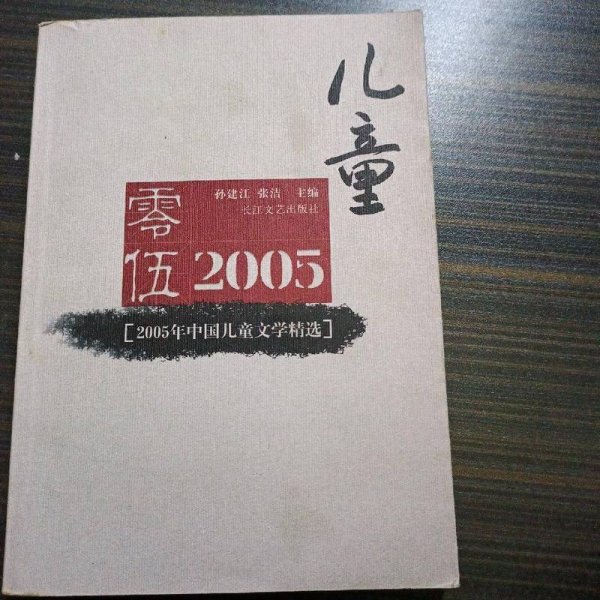 儿童
孙建江 张洁 主编
长江文艺出版社
零伍
2005
[2005年中国儿童文学精选]